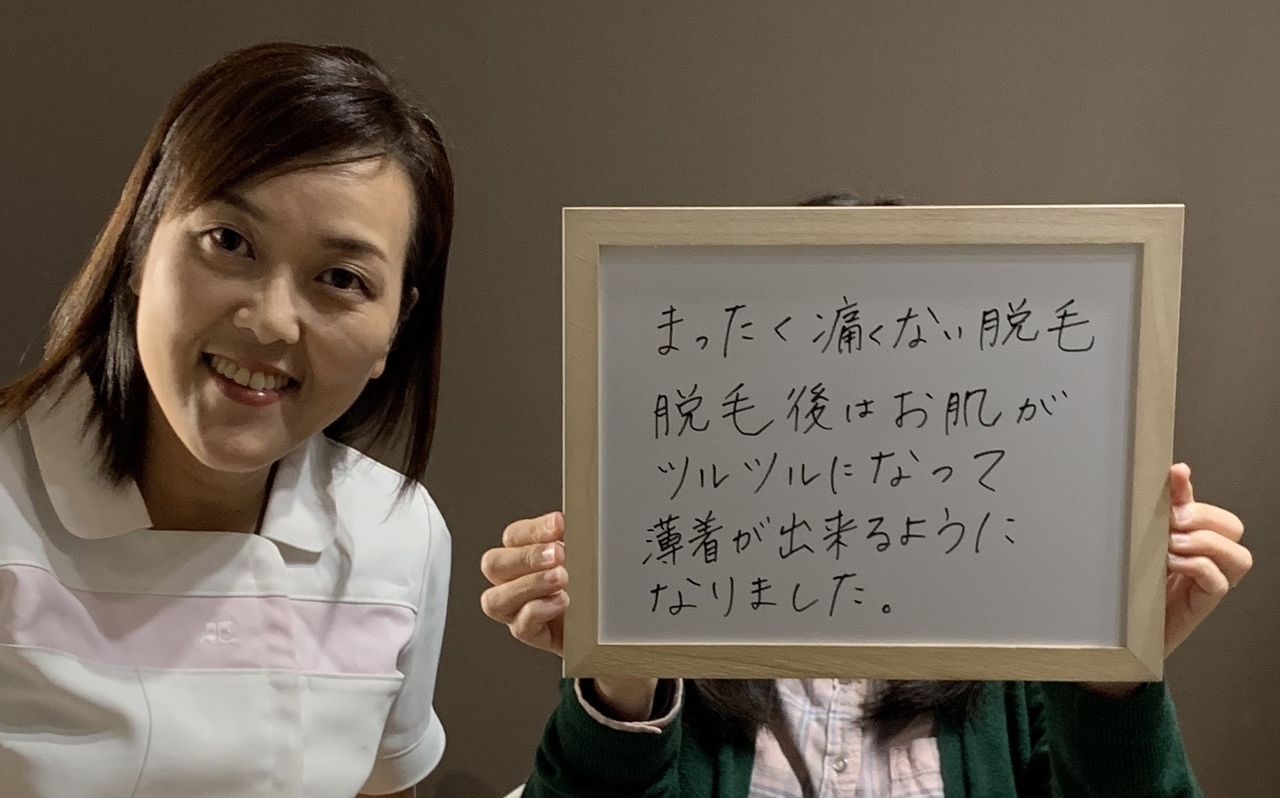 まったく痛くない脱毛
脱毛後はお肌が
ツルツルになって
薄着が出来るように
なりました。